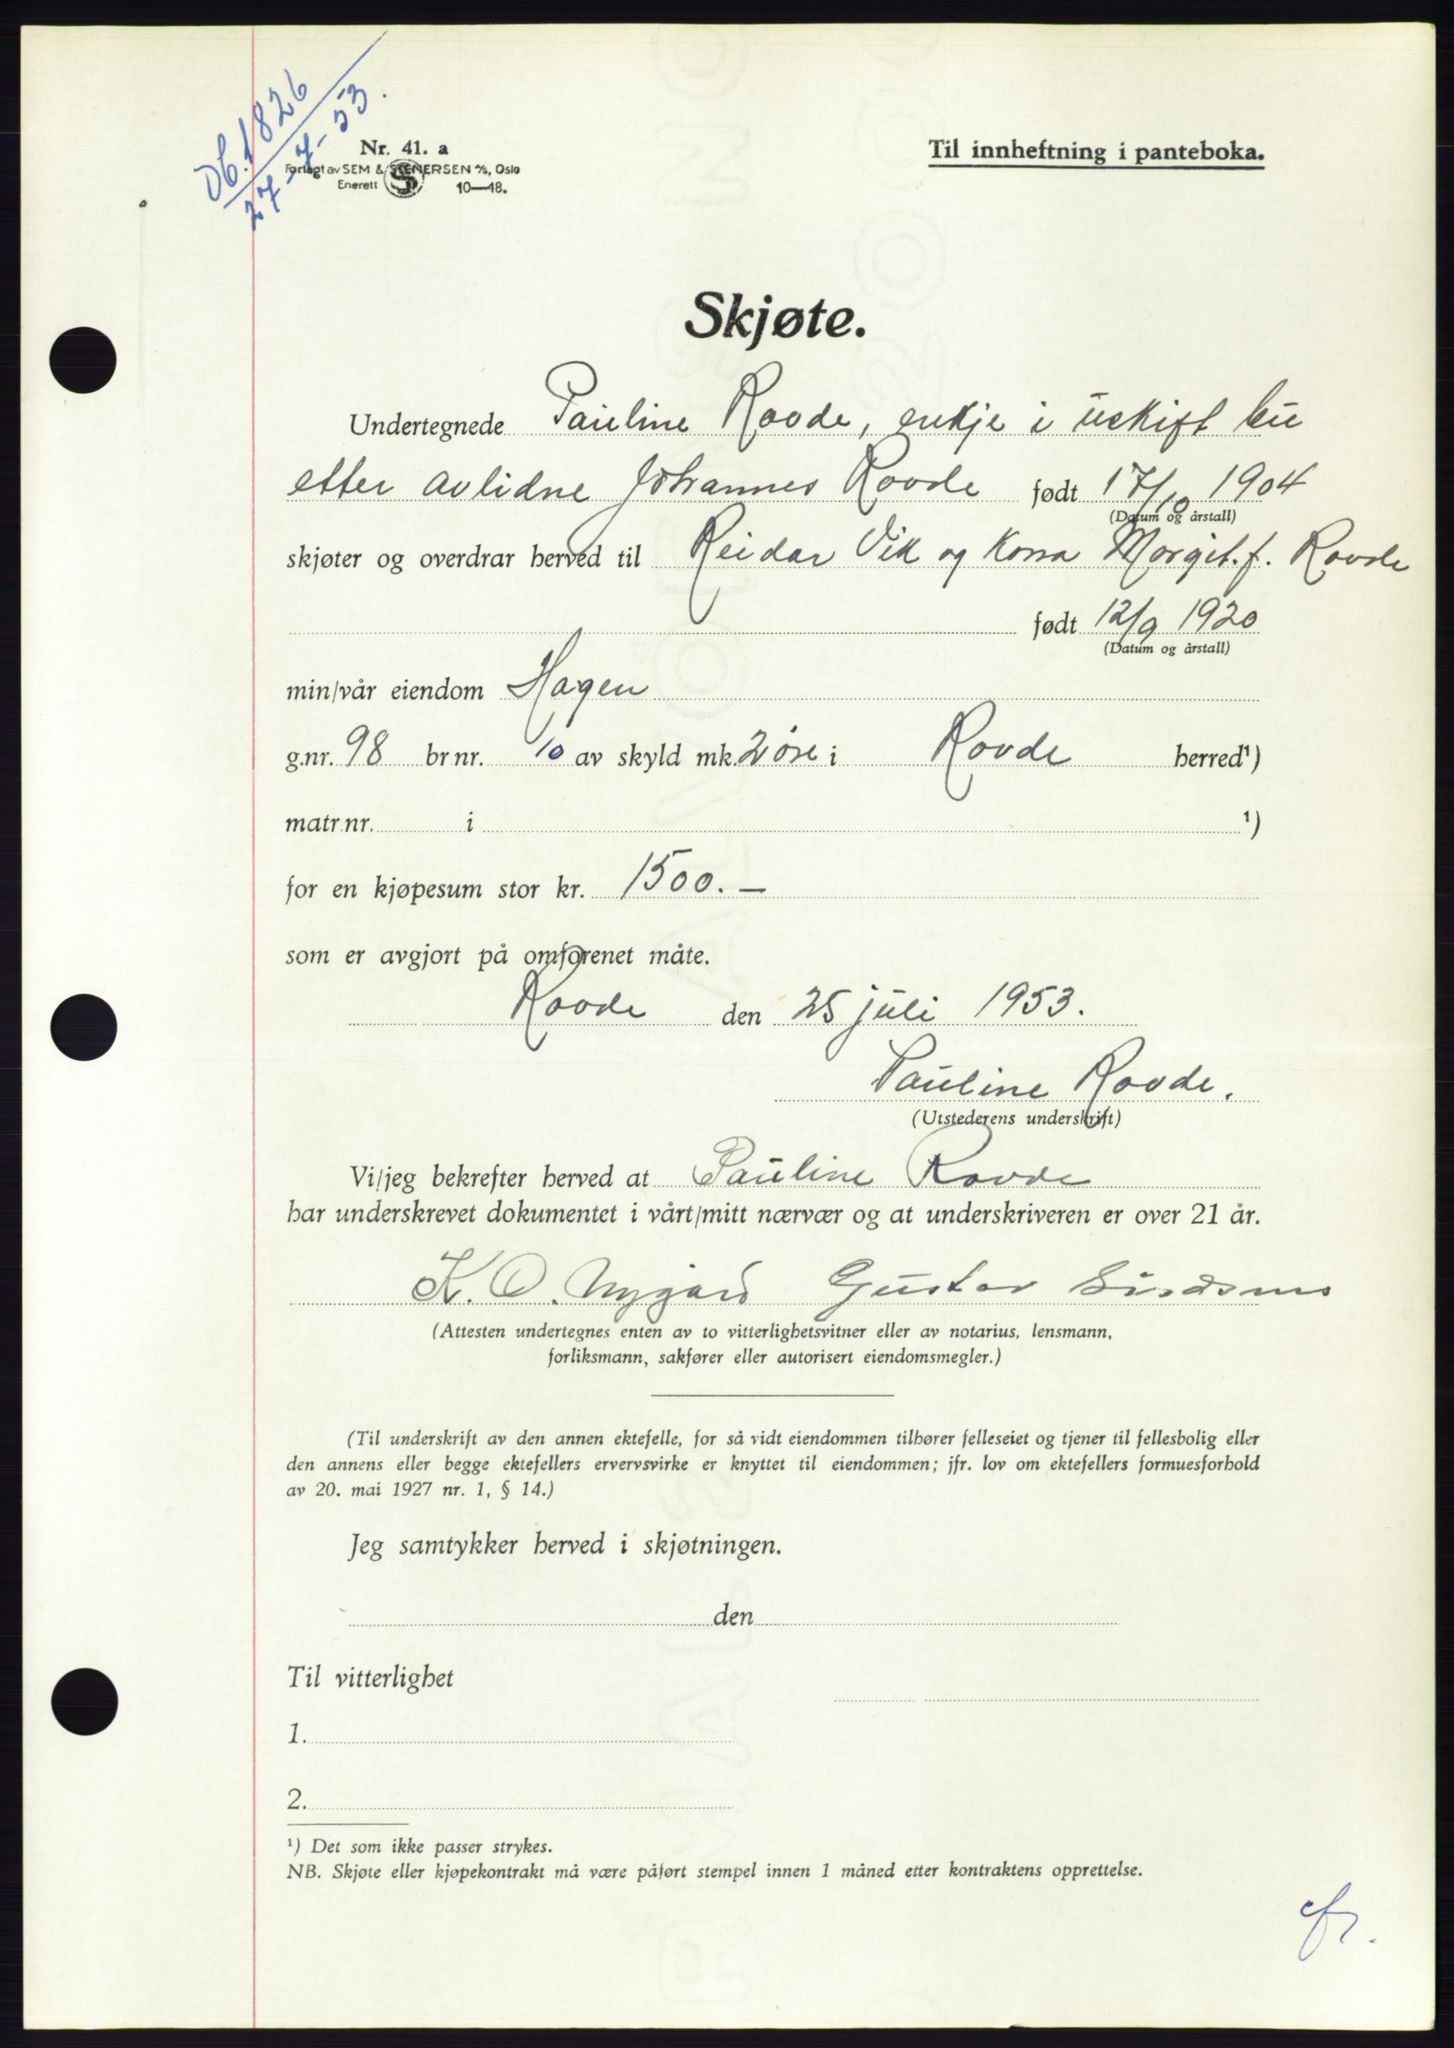 Db. 1826
27-7-53.
Nr. 41. a
Forlagt av SEM & STENERSEN A/S, Oslo
Enerett 10—48.
Til innheftning i panteboka.
Skjøte.
Undertegnede Pauline Rovde, enkje i uskift bu
etter avlidne Johannes Rovde født 17/10 1904
(Datum og årstall)
skjøter og overdrar herved til Reidar Vik og Kona Margit. f. Rovde
født 12/9 1920
(Datum og årstall)
min/vår eiendom Hagen
g.nr. 98 br.nr. 10 av skyld mk. 2 øre i Rovde herred¹)
matr.nr. i ¹)
for en kjøpesum stor kr. 1500.—
som er avgjort på omforenet måte.
Rovde den 25 juli 1953.
Pauline Rovde.
(Utstederens underskrift)
Vi/jeg bekrefter herved at Pauline Rovde
har underskrevet dokumentet i vårt/mitt nærvær og at underskriveren er over 21 år.
K. O. Nygård Gustav
(Attesten undertegnes enten av to vitterlighetsvitner eller av notarius, lensmann,
forliksmann, sakfører eller autorisert eiendomsmegler.)
(Til underskrift av den annen ektefelle, for så vidt eiendommen tilhører felleseiet og tjener til fellesbolig eller
den annens eller begge ektefellers ervervsvirke er knyttet til eiendommen; jfr. lov om ektefellers formuesforhold
av 20. mai 1927 nr. 1, § 14.)
Jeg samtykker herved i skjøtningen.
den
Til vitterlighet
1.
2.
¹) Det som ikke passer strykes.
NB. Skjøte eller kjøpekontrakt må være påført stempel innen 1 måned etter kontraktens opprettelse.